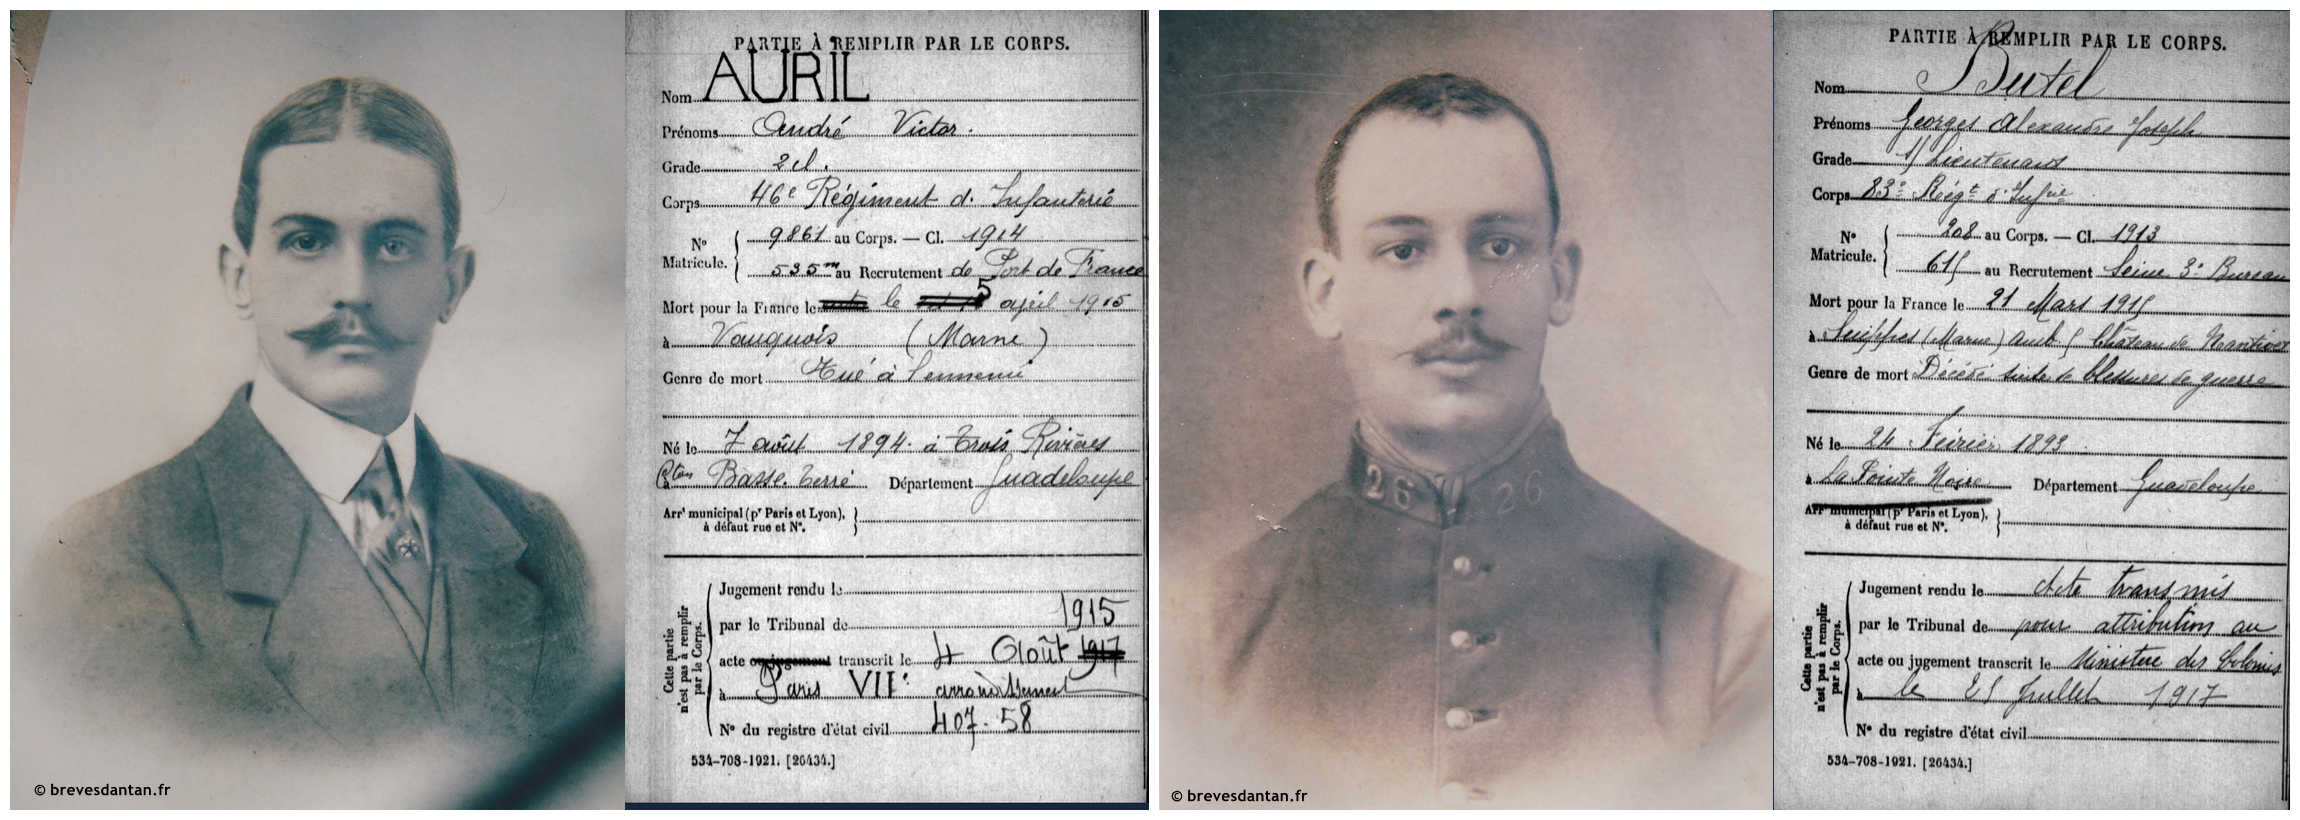 PARTIE À REMPLIR PAR LE CORPS.
Nom AURIL
Prénoms André Victor.
Grade 2 cl.
Corps 46e Régiment d. Infanterie
N° Matricule. 9861 au Corps. — Cl. 1914
535 m au Recrutement de Fort de France
Mort pour la France le le 5 avril 1915
à Vauquois (Marne)
Genre de mort Tué à l'ennemi
Né le 7 août 1894. à Trois Rivières
Cton Basse. Terre Département Guadeloupe
Arrt municipal (pr Paris et Lyon),
à défaut rue et N°.
Cette partie n'est pas à remplir par le Corps.
Jugement rendu le
par le Tribunal de 1915
acte ou jugement transcrit le 4 Août 1917
à Paris VIIe arrondissement
N° du registre d'état civil 407-58
534-708-1921. [26434.]
© brevesdantan.fr
PARTIE À REMPLIR PAR LE CORPS.
Nom Butel
Prénoms Georges Alexandre Joseph
Grade S/Lieutenant
Corps 83e Régt d'Infrie
N° Matricule. 208 au Corps. — Cl. 1913
615 au Recrutement Seine 3e Bureau
Mort pour la France le 21 Mars 1915
à Suippes (Marne) Amb 5 Château de Nantivet
Genre de mort Décédé suite de blessures de guerre
Né le 24 Février 1893
à La Pointe Noire Département Guadeloupe
Arrt municipal (pr Paris et Lyon),
à défaut rue et N°.
Cette partie n'est pas à remplir par le Corps.
Jugement rendu le Acte transmis
par le Tribunal de pour attribution au
acte ou jugement transcrit le Ministère des Colonies
à le 25 Juillet 1917
N° du registre d'état civil
534-708-1921. [26434.]
26 26
© brevesdantan.fr